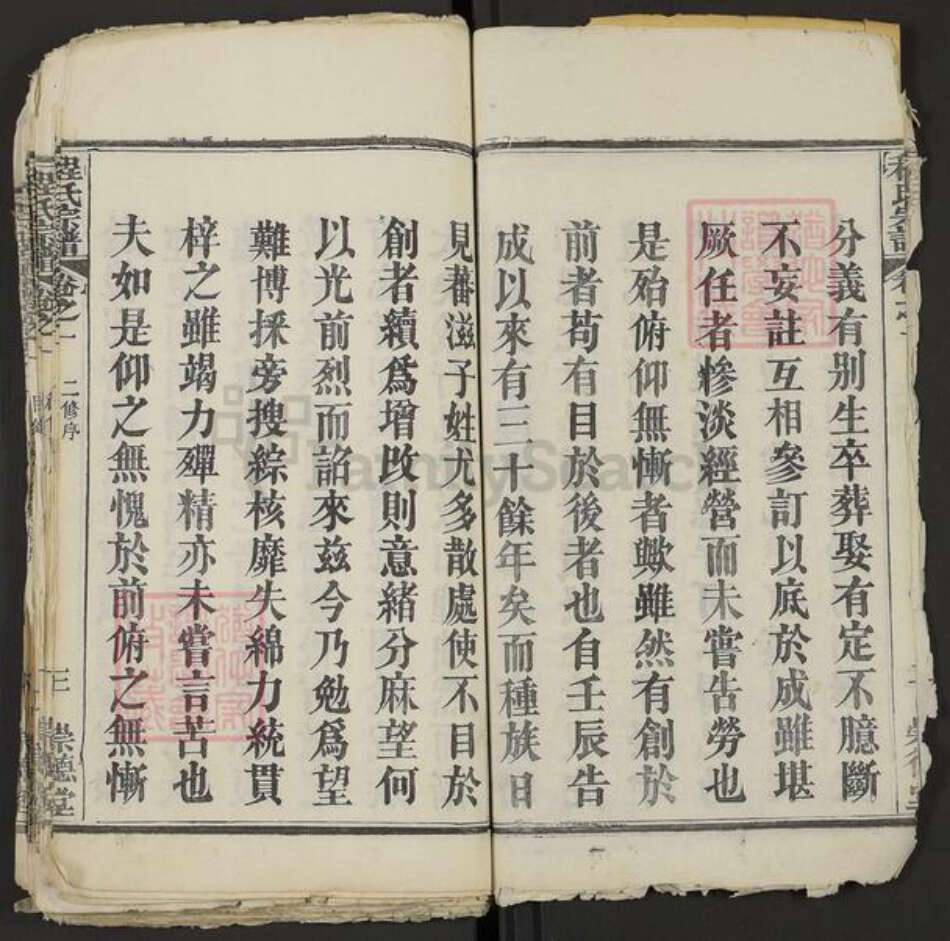 分義有别生卒葬娶有定不臆斷
不妄註互相參訂以底於成雖堪
厥任者慘淡經營而未嘗告勞也
是殆俯仰無慚者歟雖然有創於
前者苟有目於後者也自壬辰告
成以來有三十餘年矣而種族日
見蕃滋子姓尤多散處使不目於
創者續爲增改則意緒分麻望何
以光前烈而詒來兹今乃勉爲望
難博採旁搜綜核靡失綿力統貫
梓之雖竭力殫精亦未嘗言苦也
夫如是仰之無愧於前俯之無慚
程氏宗譜 卷之一 二修序 三 崇德堂
FamilySearch